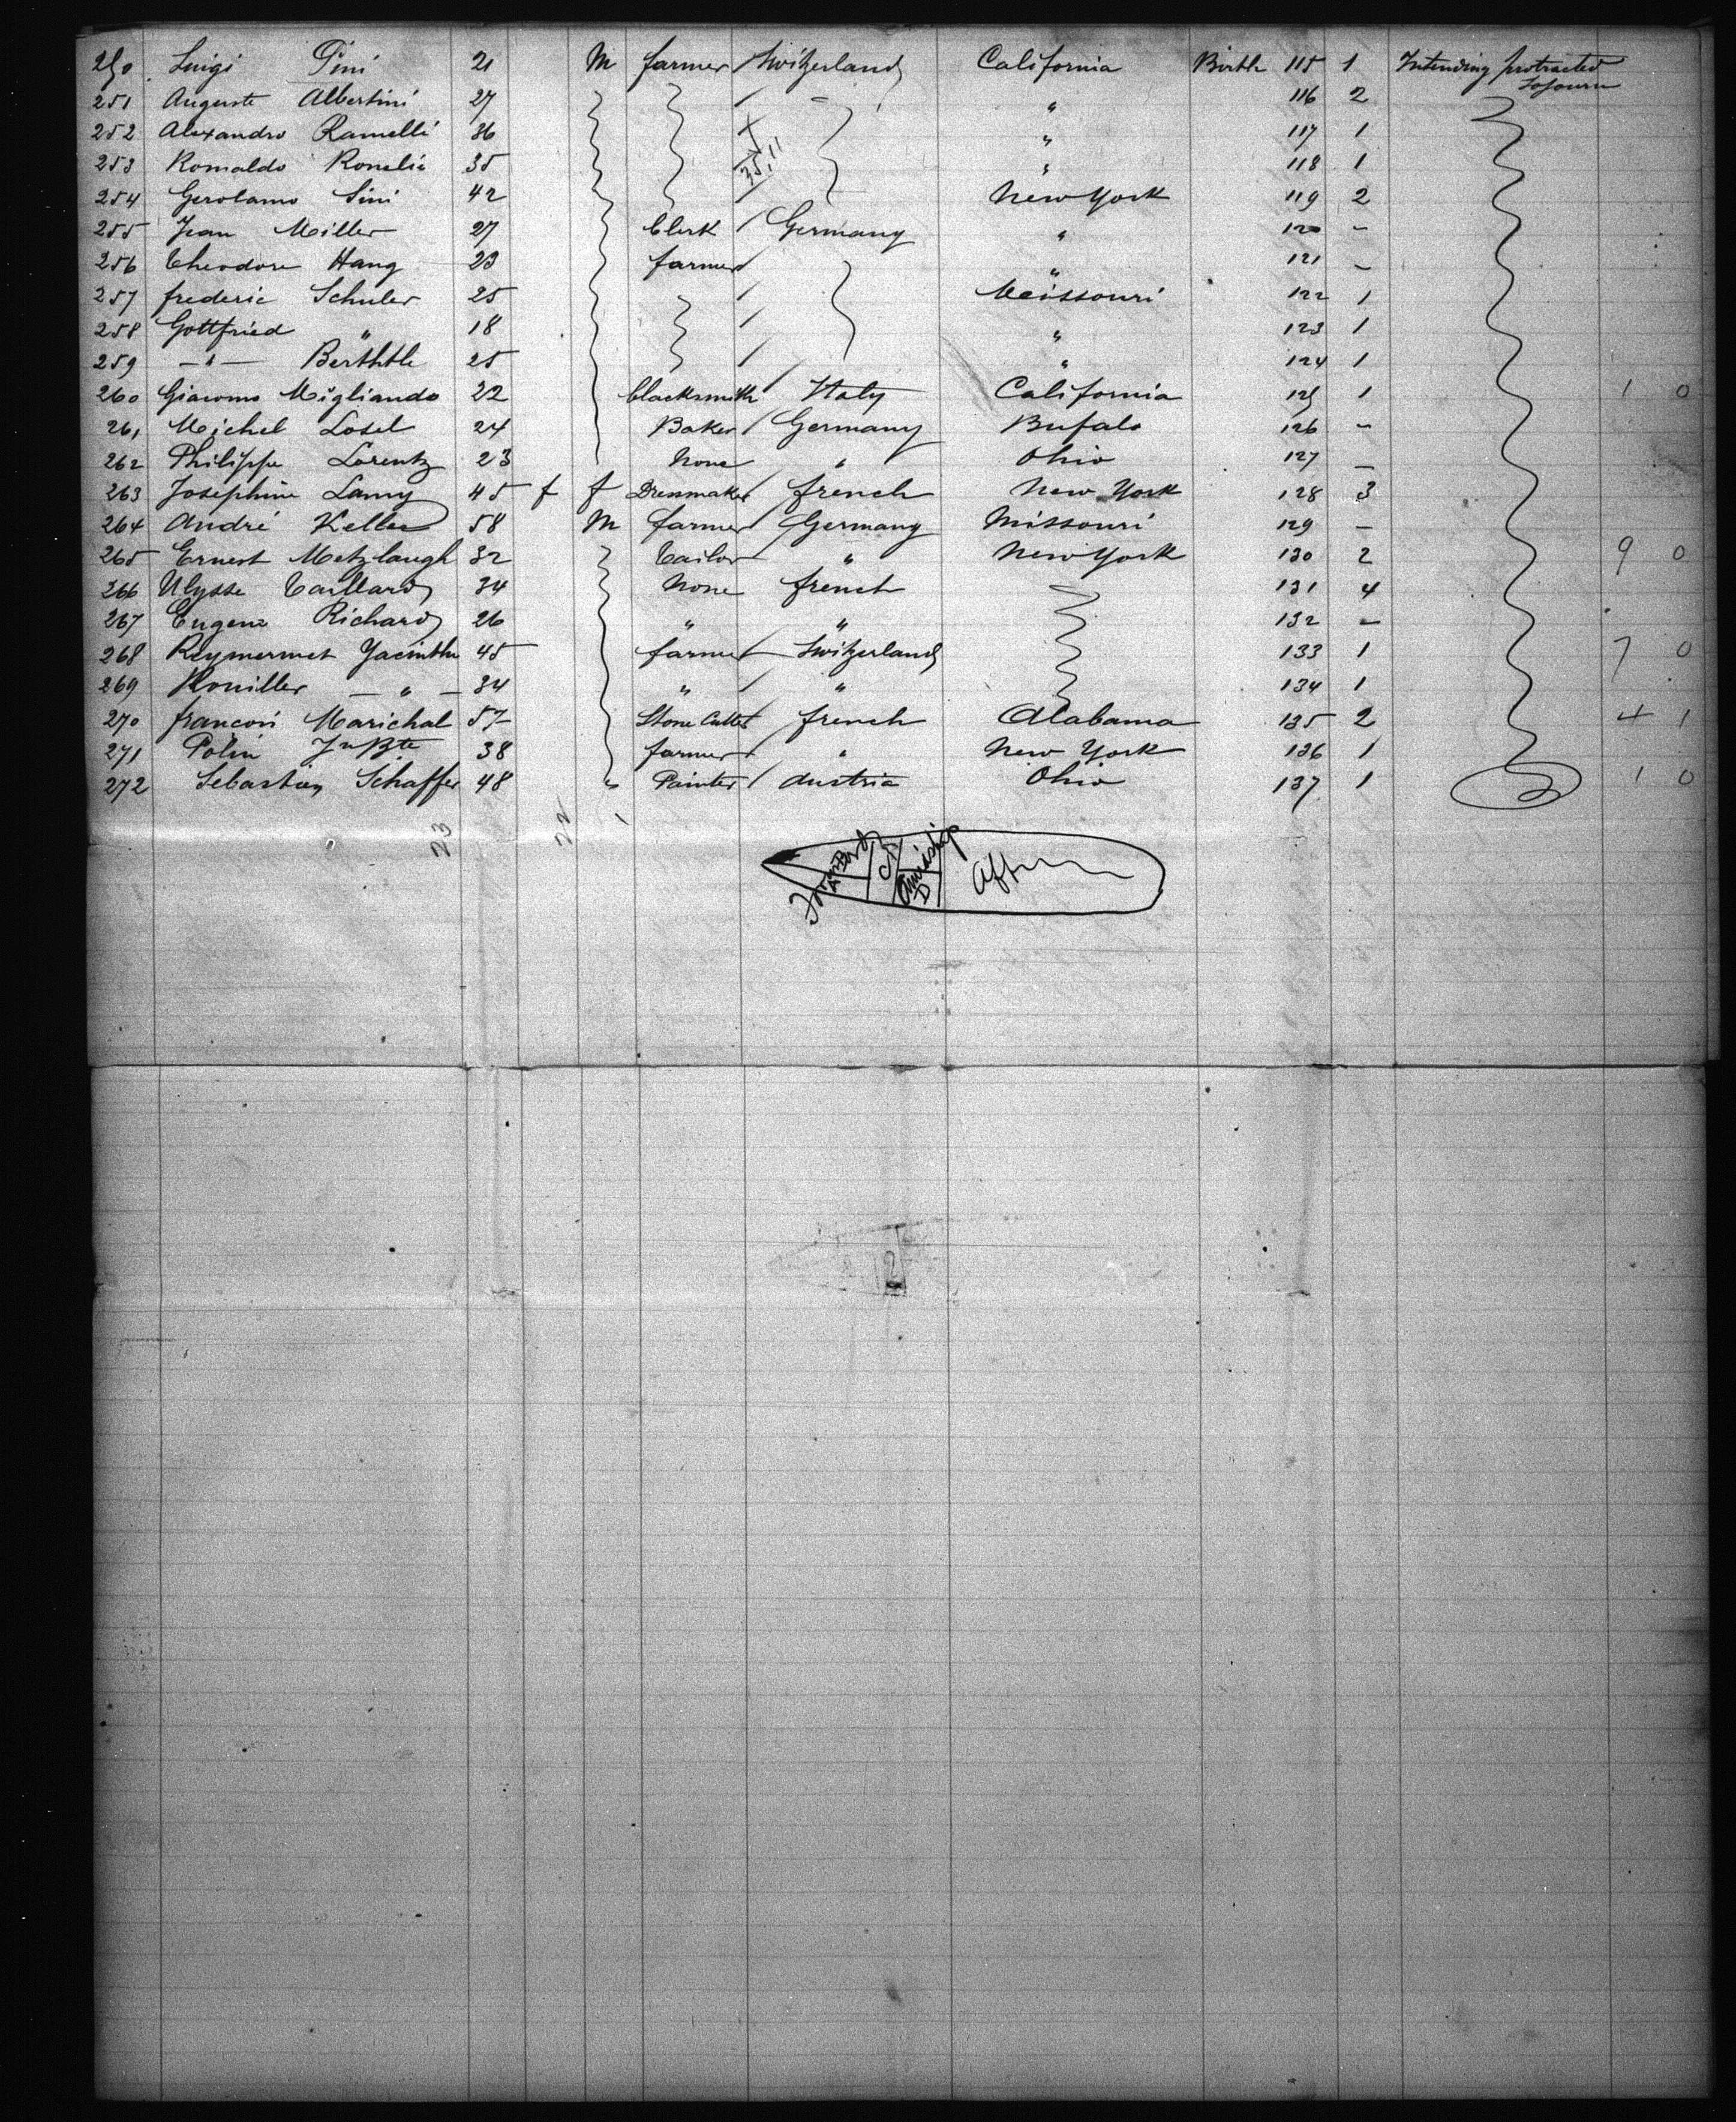 250 Luigi Pini 21 M farmer Switzerland California Birth 115 1 Intending protracted
Sojourn
251 Auguste Albertini 27 " 116 2
252 Alexandro Ramelli 36 " 117 1
253 Romaldo Ronelie 35 35,11 " 118 1
254 Gerolamo Sini 42 New York 119 2
255 Jean Miller 27 Clerk Germany " 120 -
256 Theodore Hang 23 farmer " 121 -
257 frederic Schuler 25 Meissouri 122 1
258 Gottfried " 18 " 123 1
259 -"- Berthtle 25 " 124 1
260 Giacomo Migliando 22 blacksmith Italy California 125 1 1 0
261 Meichel Losel 24 Baker Germany Bufalo 126 -
262 Philippe Lorentz 23 None " Ohio 127 -
263 Josephine Lamy 45 f f Dressmaker french New York 128 3
264 André Keller 58 M farmer Germany Missouri 129 -
265 Ernest Metzlaugh 32 Tailor " New York 130 2 9 0
266 Ulysse Taillard 34 None french 131 4
267 Eugene Richard 26 " " 132 -
268 Reymermet Jacinthe 45 farmer Switzerland 133 1 7 0
269 Rouiller - " - 34 " " 134 1
270 francois Marichal 57 Stone Cutter french Alabama 135 2 4 1
271 Polin Jn Bte 38 farmer " New York 136 1
272 Sebastien Schaffer 48 " Painter Austria Ohio 137 1 1 0
23 22
Amidship
D
Aft